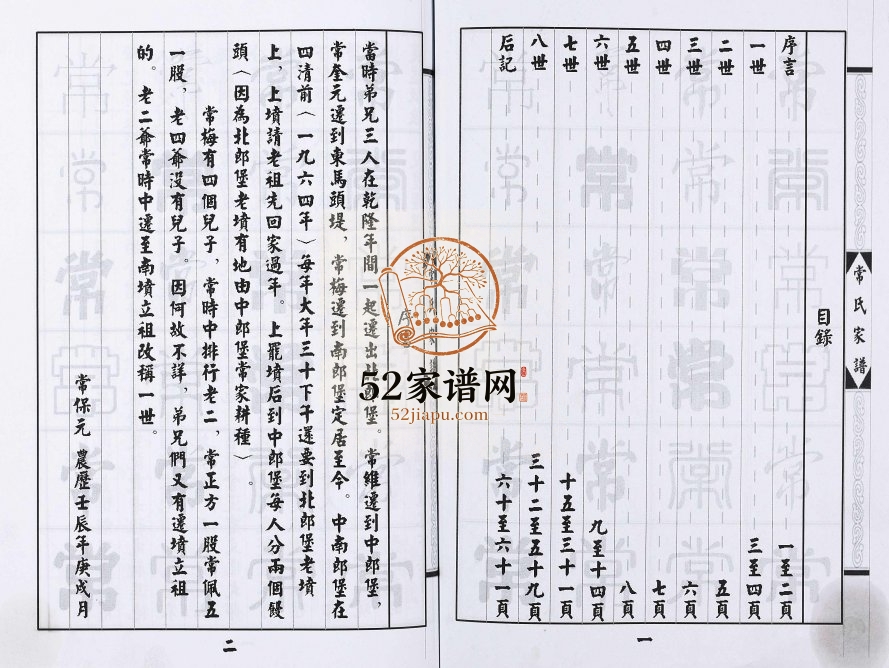 常氏家譜
目錄
序言 一至二頁
一世 三至四頁
二世 五頁
三世 六頁
四世 七頁
五世 八頁
六世 九至十四頁
七世 十五至三十一頁
八世 三十二至五十九頁
后記 六十至六十一頁
一
當時弟兄三人在乾隆年間一起遷出北郎堡。常維遷到中郎堡，
常奎元遷到東馬頭堤，常梅遷到南郎堡定居至今。中南郎堡在
四清前（一九六四年）每年大年三十下午還要到北郎堡老墳
上，上墳請老祖先回家過年。上罷墳后到中郎堡每人分兩個饅
頭（因為北郎堡老墳有地由中郎堡常家耕種）。
常梅有四個兒子，常時中排行老二，常正方一股常佩五
一股，老四爺沒有兒子。因何故不詳，弟兄們又有遷墳立祖
的。老二爺常時中遷至南墳立祖改稱一世。
常保元 農歷壬辰年庚戌月
二
52家谱网
52jiapu.com